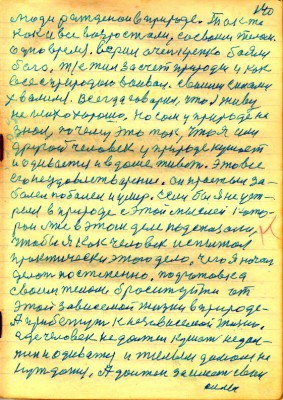 140
люди рожденой в природе. Так же
как и все возростали, со своим телом.
одно время, верил очень
бога, же жил за счет природы и как
все с природою воевал. своими силами
хвалил. Всегда говорил, что я живу
не плохо хорошо. Но сам у природе не
знал, почему это так, что я или
другой человек у природе кушает
и одивается и в доме живет. Это все
его неудовлетворение. Он простыл за-
болел поболел и умер. Если бы я не
в природе с этой мыслей кото-
рой мне в этом деле подсказали,
чтобы я как человек испытал
практически этого дело, чего я начал
делать постепенно. подготовка
своим телом бросить уйти от
этой зависимой жизни в природе.
А прибегнут к независемой жизни.
где человек не должен кушать не дол-
жин одивать и жилым домом не
нуждат. А должен за своими
силы